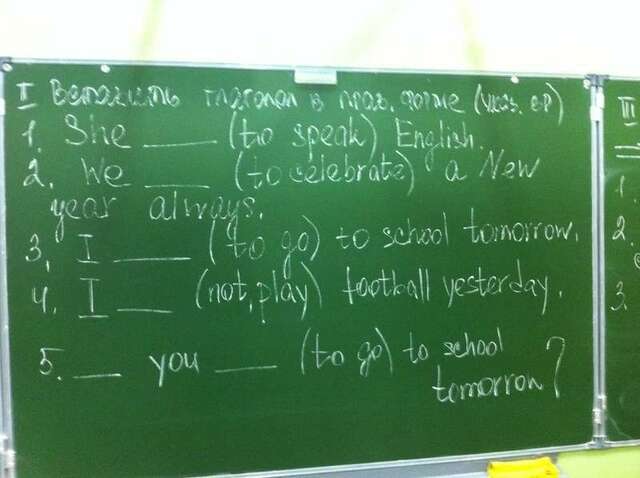 II Вставить глаголы в прав. форме (указ. вр)
1. She ____ (to speak) English.
2. We ____ (to celebrate) a New
year always.
3, I ____ (to go) to school tomorrow.
4. I ___ (not, play) football yesterday.
5. ___ you ____ (to go) to school
tomorrow?
III
1.
2.
3.